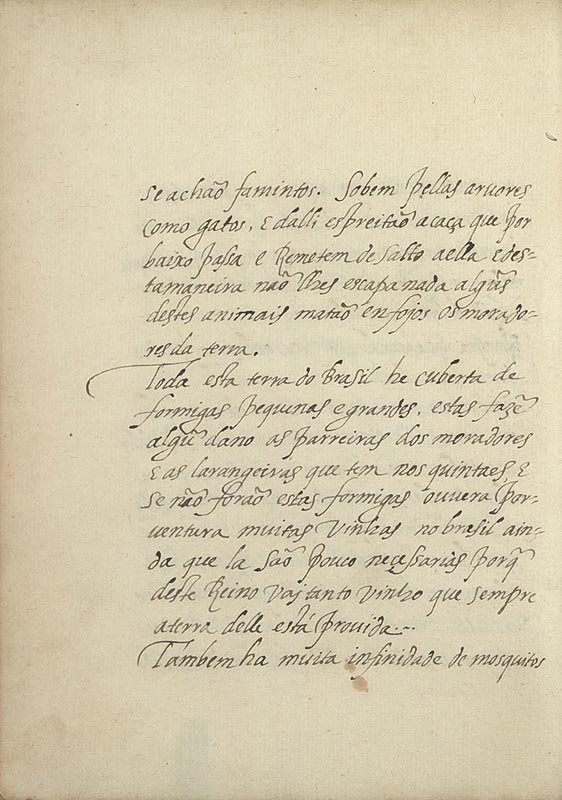 se achaõ famintos. Sobem pellas aruores
como gatos, E dalli espreitaõ acaça que por
baixo passa e Remetem de salto aella E des-
tamaneira naõ lhes escapa nada algũs
destes animais mataõ enfojos os morado-
res da terra.
Toda esta terra do Brasil he cuberta de
formigas pequenas e grandes, estas fazẽ
algũ dano as parreiras dos moradores
E as larangeiras que tem nos quintaes, E
se naõ foraõ estas formigas ouvera por-
ventura muitas vinhas no brasil ain-
da que la saõ pouco necessarias porq̃
deste Reino vaj tanto vinho que sempre
aterra delle está prouida.~
Tambem ha muita infinidade de mosquitos